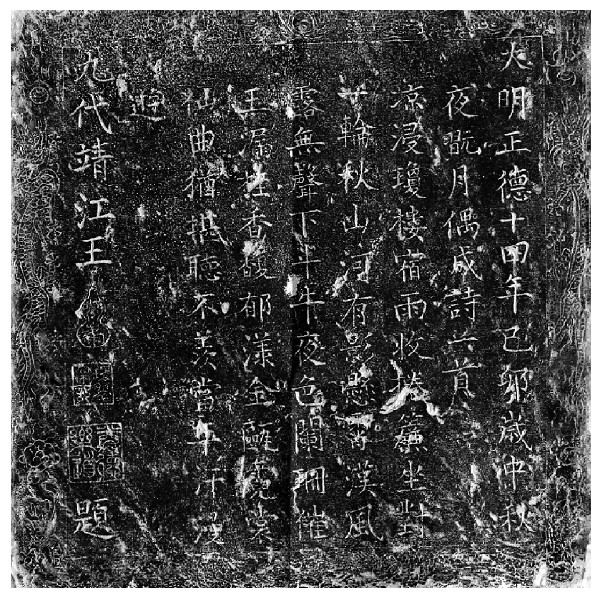 大明正德十四年己卯歲中秋
夜既月偶成詩六首
凉浸瓊樓宿雨收捲簾坐對
一輪秋山河有影懸霄漢風
露無聲下斗牛夜色闌珊催
玉漏桂香馥郁漾金甌霓裳
仙曲猶堪聽不羨當年汗漫
遊
九代靖江王 題